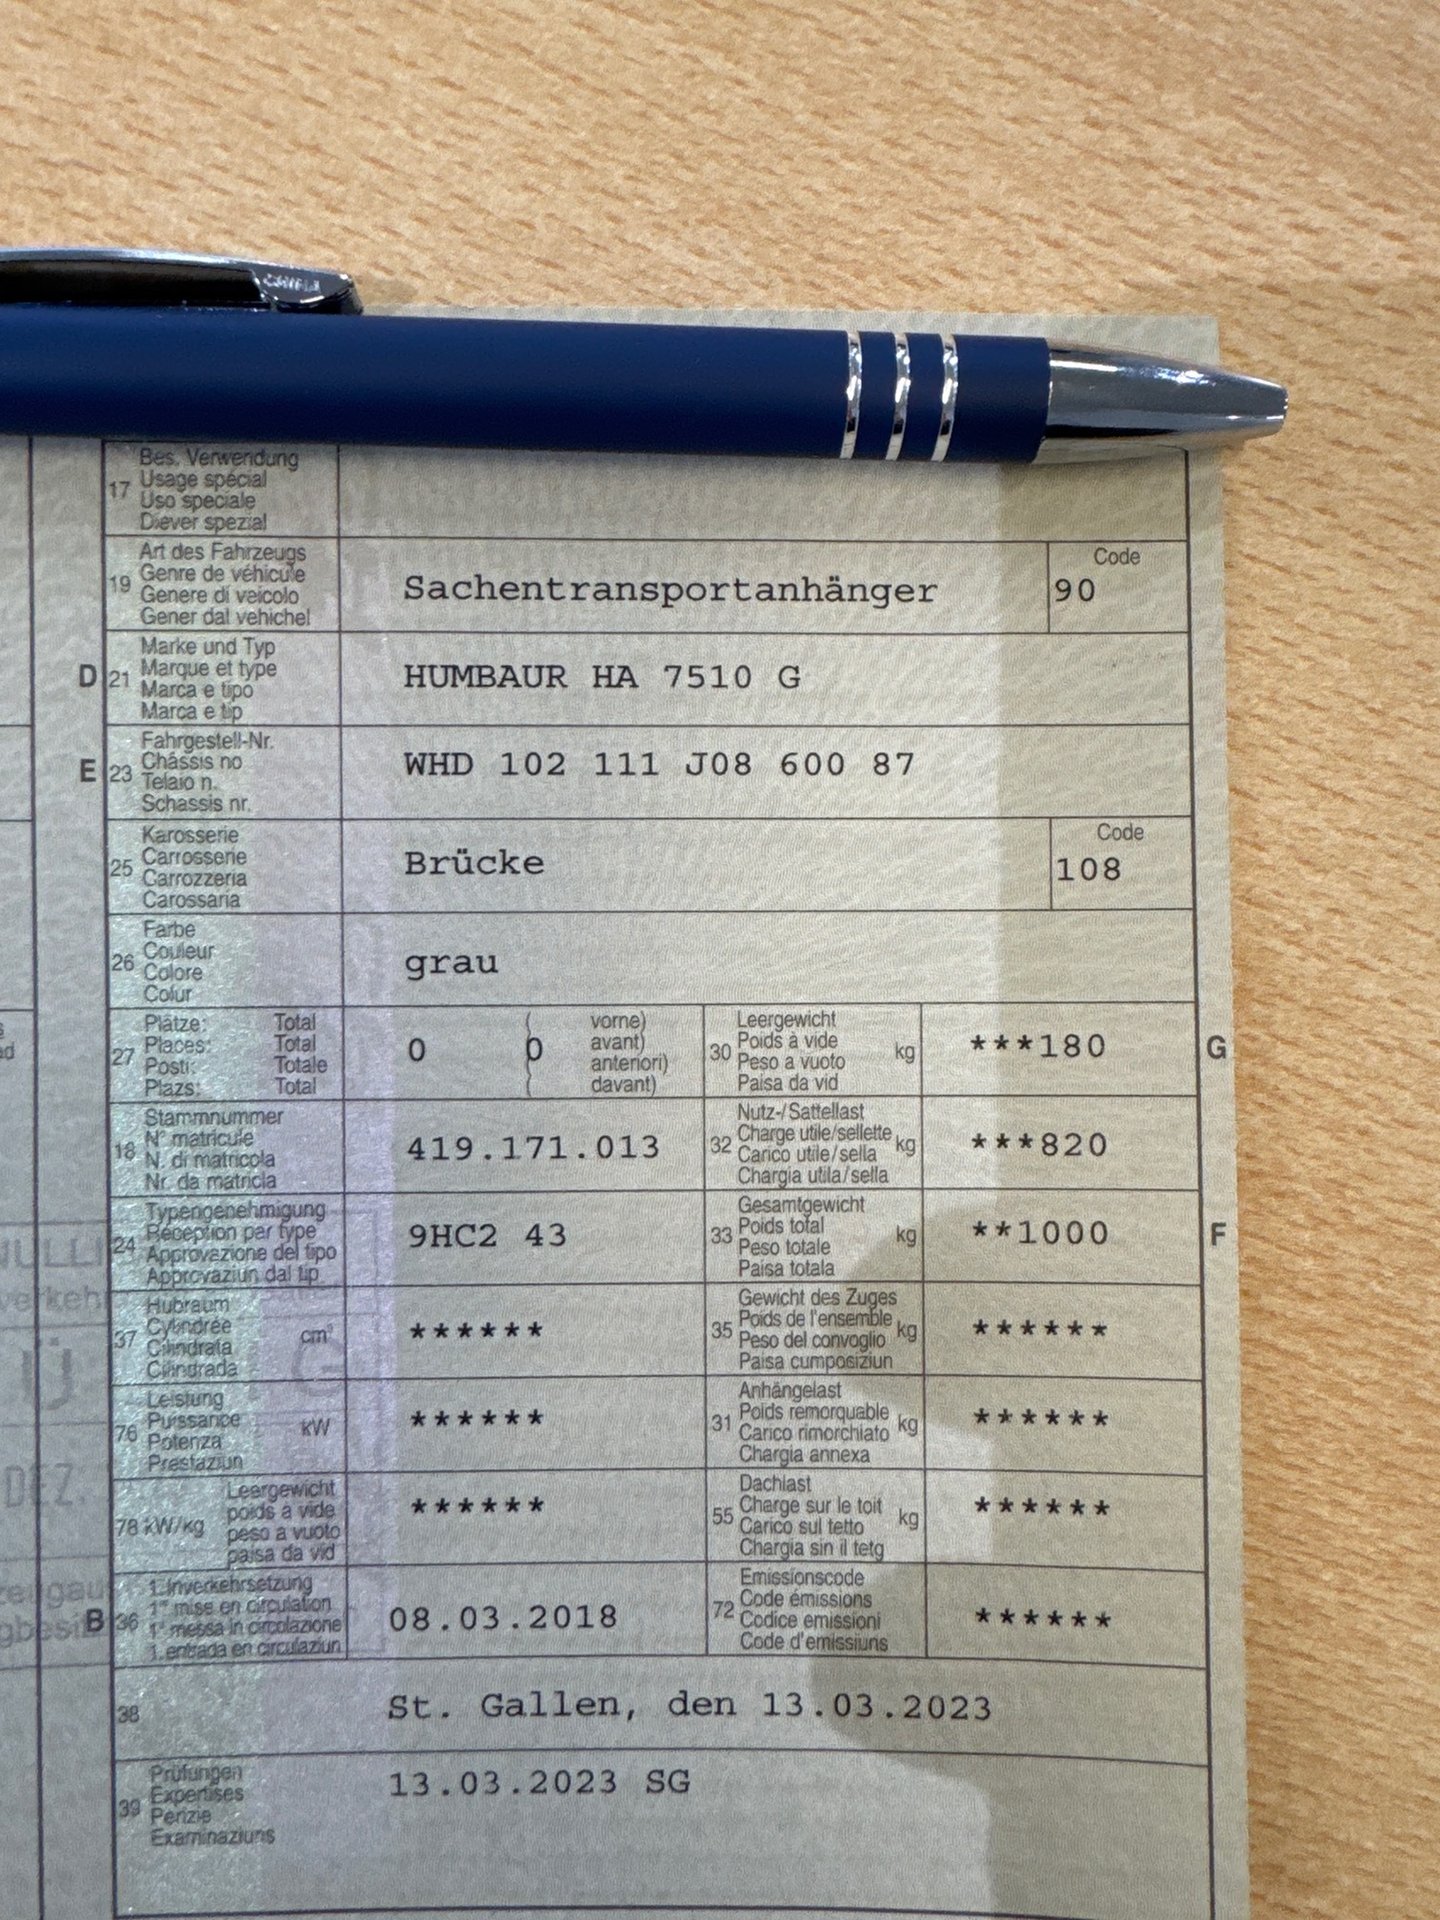 Bes. Verwendung
17 Usage spécial
Uso speciale
Diever spezial
Art des Fahrzeugs
19 Genre de véhicule
Genere di veicolo
Gener dal vehichel
Sachentransportanhänger
Code
90
D 21 Marke und Typ
Marque et type
Marca e tipo
Marca e tip
HUMBAUR HA 7510 G
E 23 Fahrgestell-Nr.
Châssis no
Telaio n.
Schassis nr.
WHD 102 111 J08 600 87
25 Karosserie
Carrosserie
Carrozzeria
Carossaria
Brücke
Code
108
26 Farbe
Couleur
Colore
Colur
grau
27 Plätze: Total
Places: Total
Posti: Totale
Plazs: Total
0 ( 0 vorne)
avant)
anteriori)
( davant)
30 Leergewicht
Poids à vide
Peso a vuoto
Paisa da vid
kg
***180
G
18 Stammnummer
N° matricule
N. di matricola
Nr. da matricla
419.171.013
32 Nutz-/Sattellast
Charge utile/sellette
Carico utile/sella
Chargia utila/sella
kg
***820
24 Typengenehmigung
Réception par type
Approvazione del tipo
Approvaziun dal tip
9HC2 43
33 Gesamtgewicht
Poids total
Peso totale
Paisa totala
kg
**1000
F
37 Hubraum
Cylindrée
Cilindrata
Cilindrada
cm³
******
35 Gewicht des Zuges
Poids de l'ensemble
Peso del convoglio
Paisa cumposiziun
kg
******
76 Leistung
Puissance
Potenza
Prestaziun
kW
******
31 Anhängelast
Poids remorquable
Carico rimorchiato
Chargia annexa
kg
******
78 kW/kg
Leergewicht
poids à vide
peso a vuoto
paisa da vid
******
55 Dachlast
Charge sur le toit
Carico sul tetto
Chargia sin il tetg
kg
******
B 36 1. Inverkehrsetzung
1re mise en circulation
1a messa in circolazione
1. entrada en circulaziun
08.03.2018
72 Emissionscode
Code émissions
Codice emissioni
Code d'emissiuns
******
38
St. Gallen, den 13.03.2023
39 Prüfungen
Expertises
Perizie
Examinaziuns
13.03.2023 SG
DEZ.